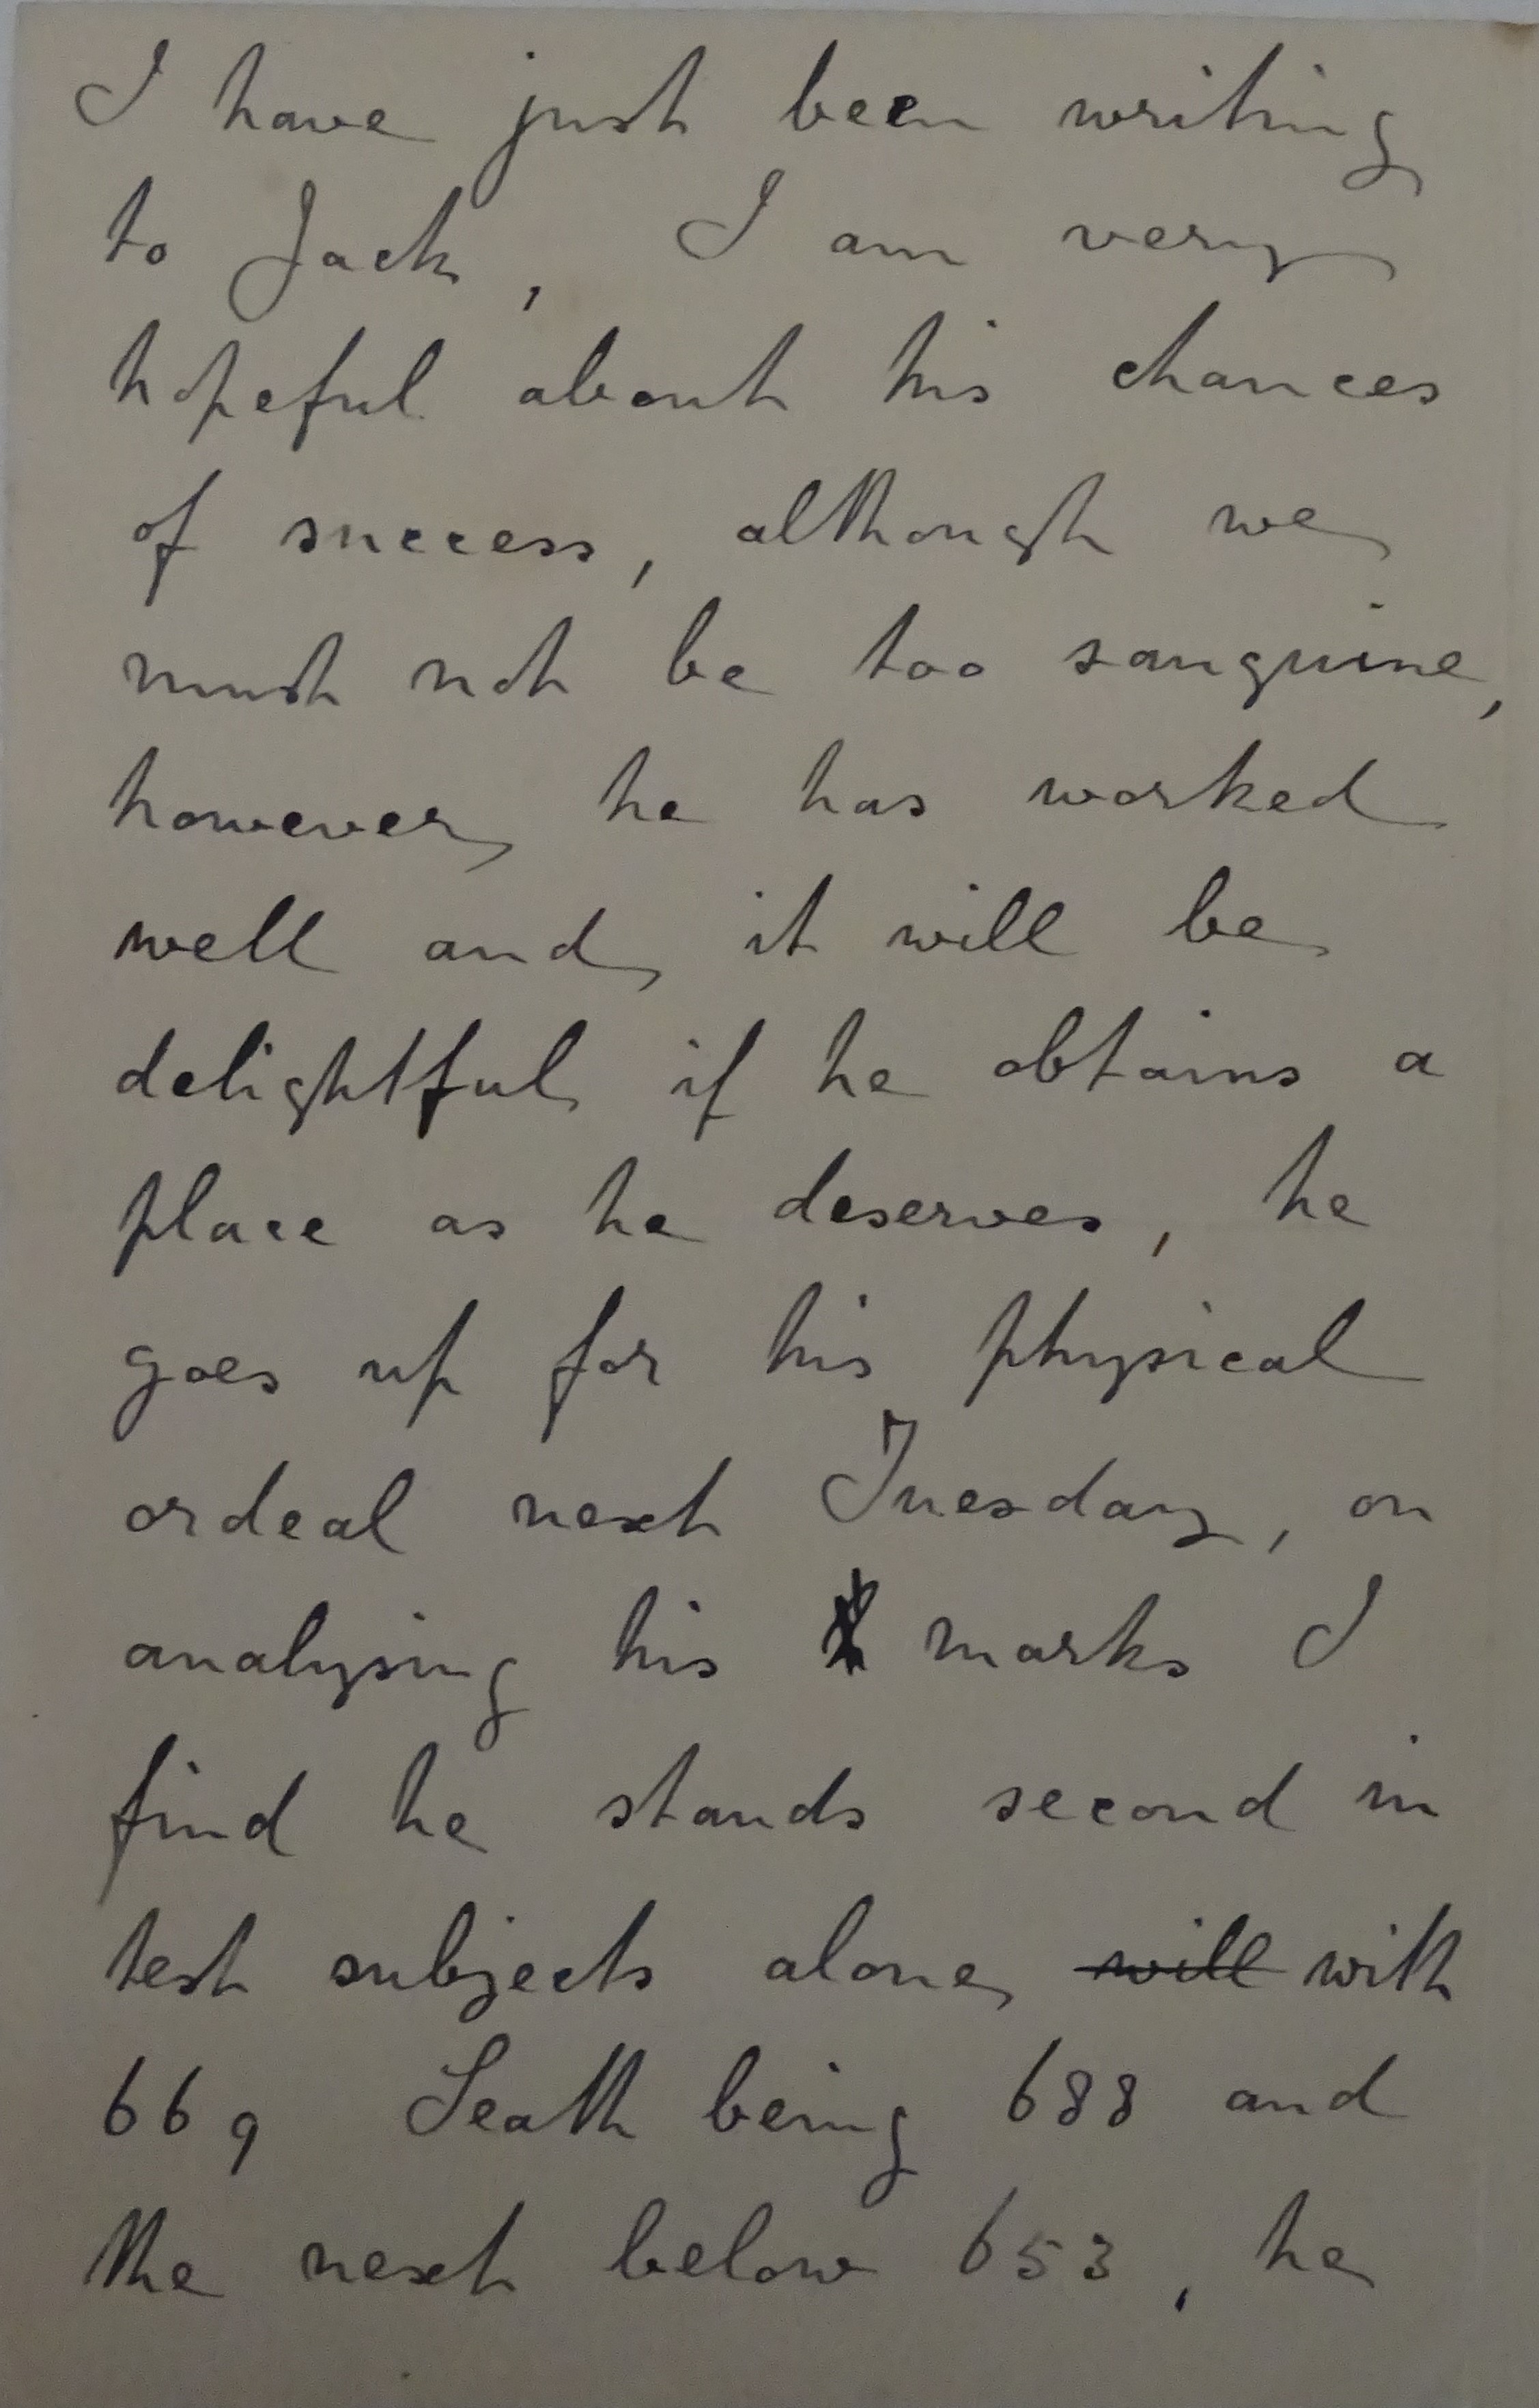 I have just been writing
to Jack, I am very
hopeful about his chances
of success, although we
must not be too sanguine,
however he has worked
well and it will be
delightful if he obtains a
place as he deserves, he
goes up for his physical
ordeal next Tuesday, on
analysing his marks I
find he stands second in
test subjects alone, will with
669 Seath being 688 and
the next below 653, he